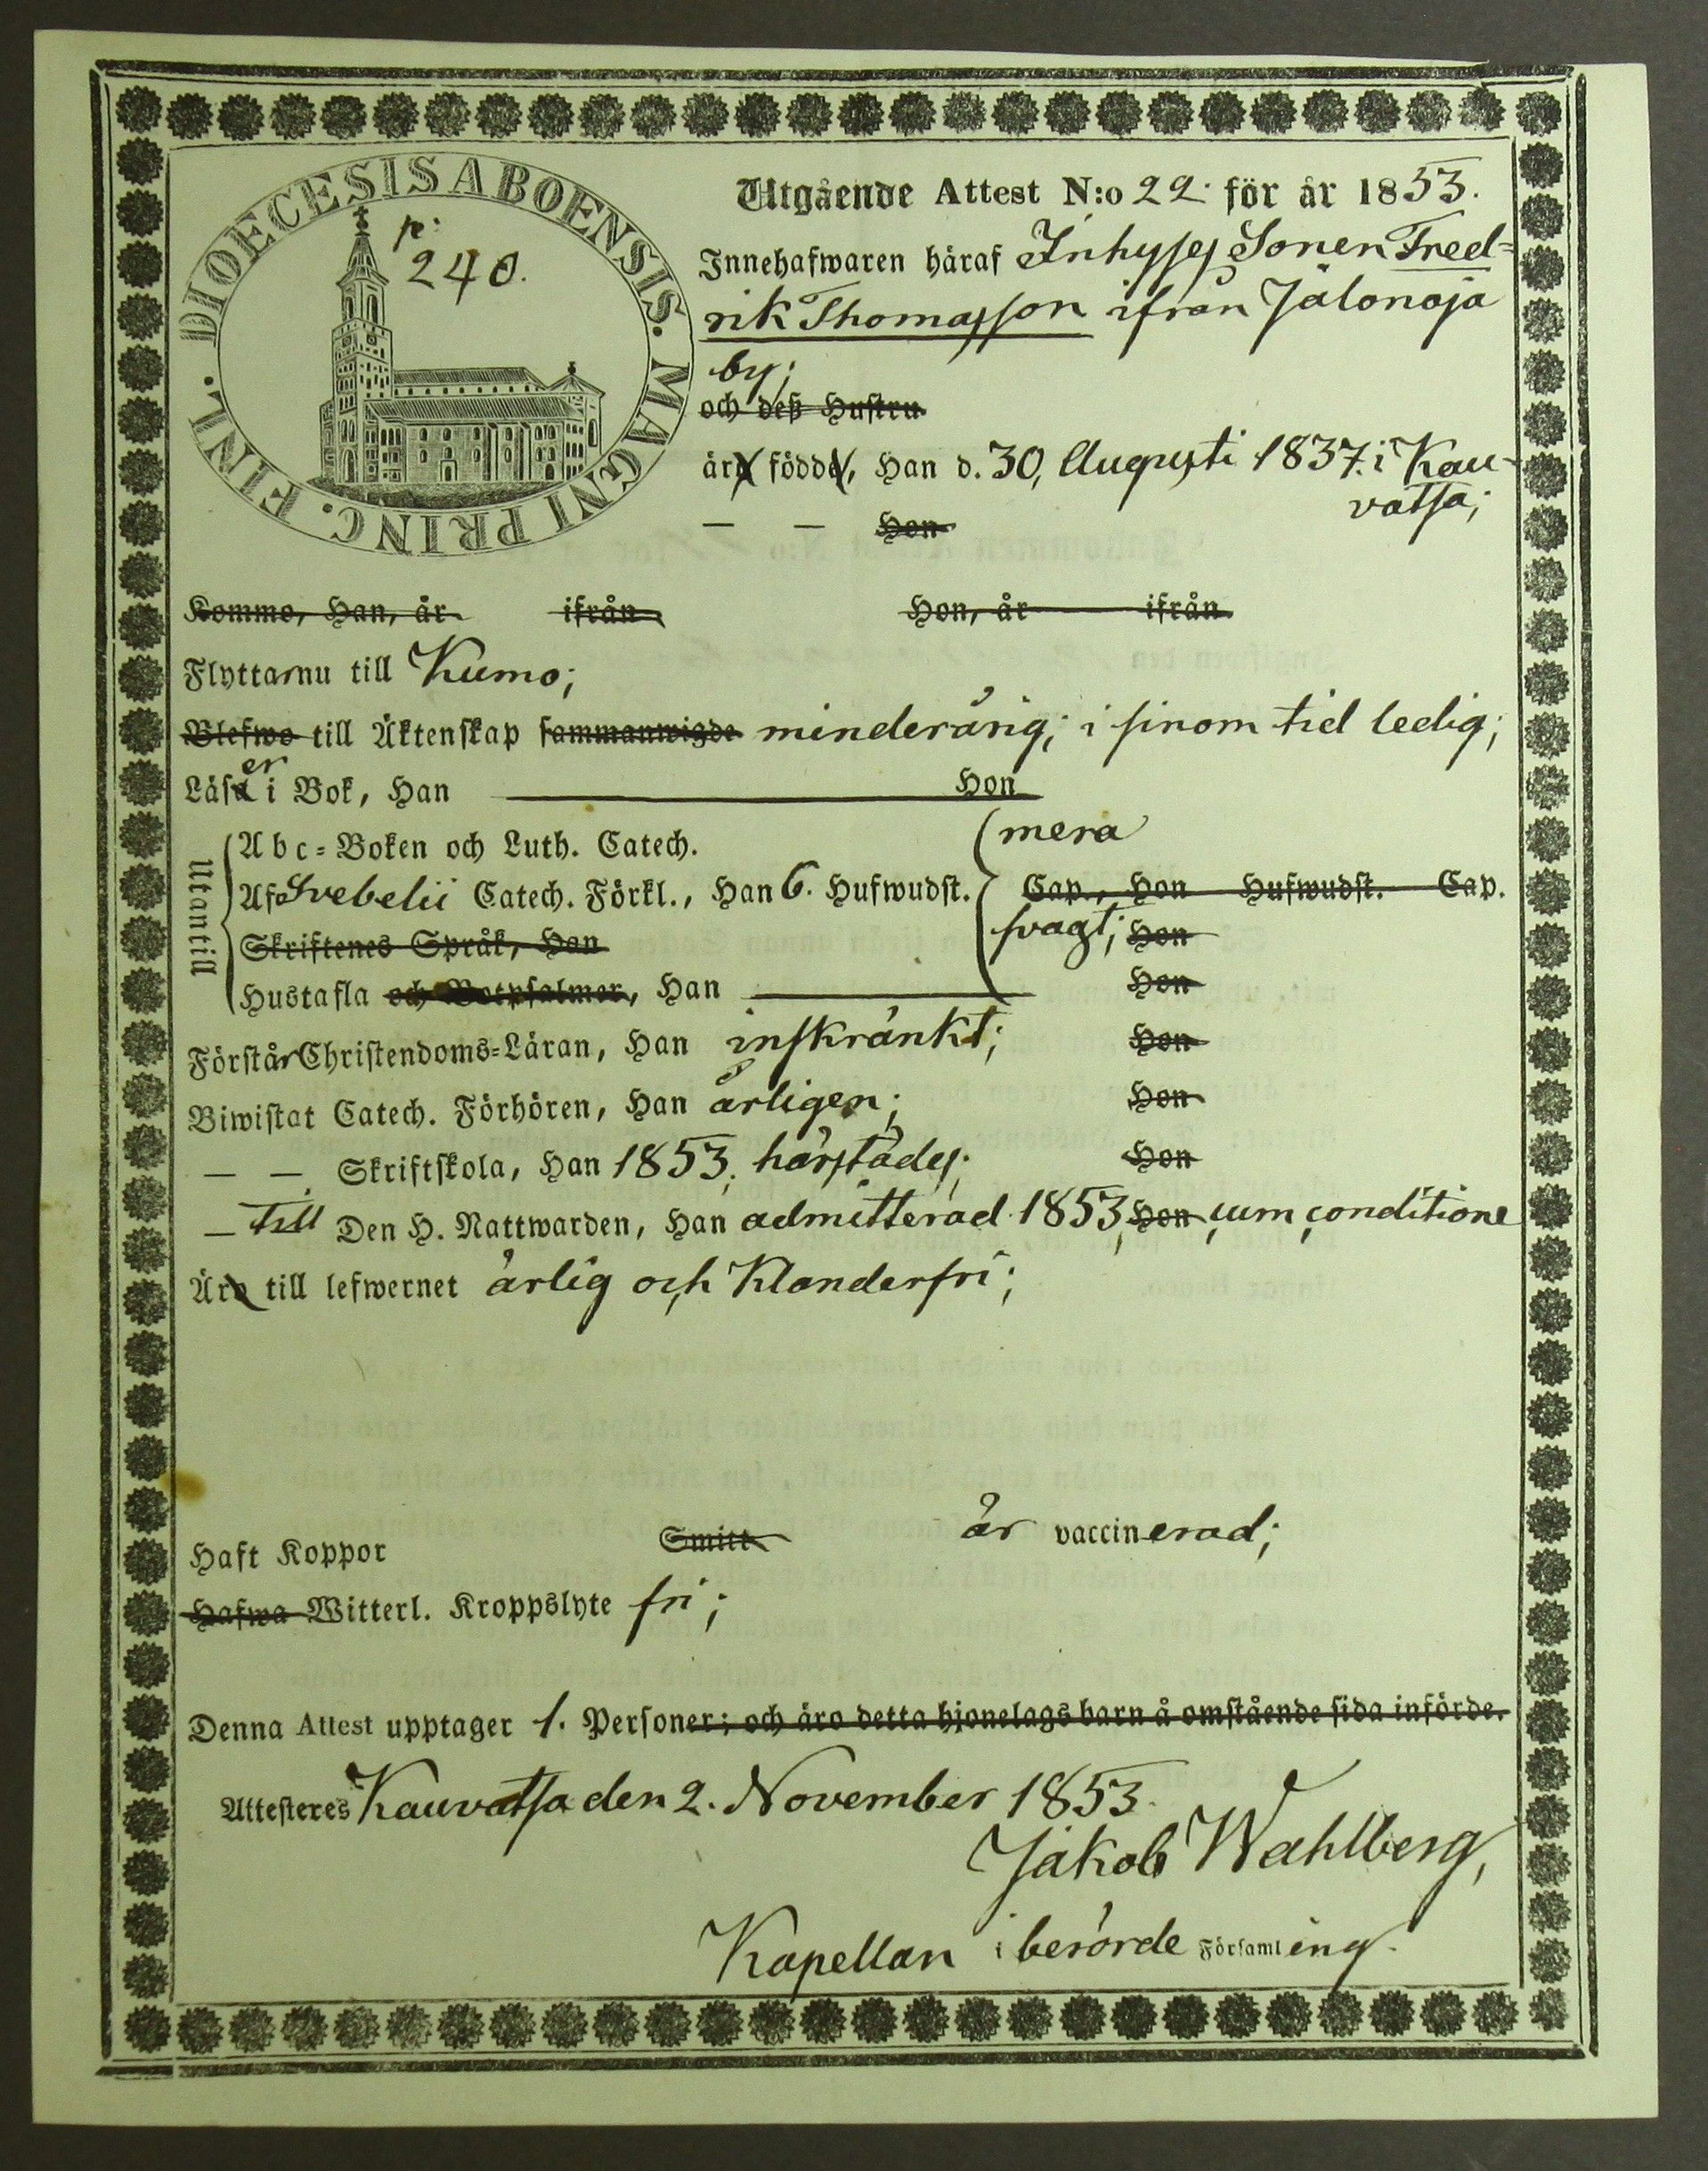 DIOECESIS ABOENSIS. MAGNI PRINC. FINL.
p: 240.
Utgående Attest N:o 22. för år 1853.
Innehafwaren häraf Inhyses Sonen Fred=
rik Thomasson ifrån Jalonoja
by;
och deß Hustru
äro födde, Han d. 30, Augusti 1837. i Kau-
vatsa;
— — Hon
Komme, Han, år ifrån Hon, år ifrån
Flyttar nu till Kumo;
Blefwo till Äktenskap sammanwigde minderårig; i sinom tid ledig;
Läser i Bok, Han Hon
Utantill
Abc=Boken och Luth. Catech. mera
Af Svebelii Catech. Förkl., Han 6. Hufwudst. Cap., Hon Hufwudst. Cap.
Skriftenes Språk, Han svagt; Hon
Hustafla och Botpsalmer, Han Hon
Förstår Christendoms=Läran, Han inskränkt; Hon
Biwistat Catech. Förhören, Han årligen; Hon
— — Skriftskola, Han 1853, härstädes; Hon
— till Den H. Nattwarden, Han admitterad 1853, Hon cum conditione
Äro till lefwernet ärlig och klanderfri;
Haft Koppor Smitt är vaccinerad;
Hafwa Witterl. Kroppslyte fri;
Denna Attest upptager 1. Personer; och äro detta hjonelags barn å omstående sida införde.
Attesteres Kauvatsa den 2. November 1853.
Jakob Wahlberg,
Kapellan i berörde Församling.